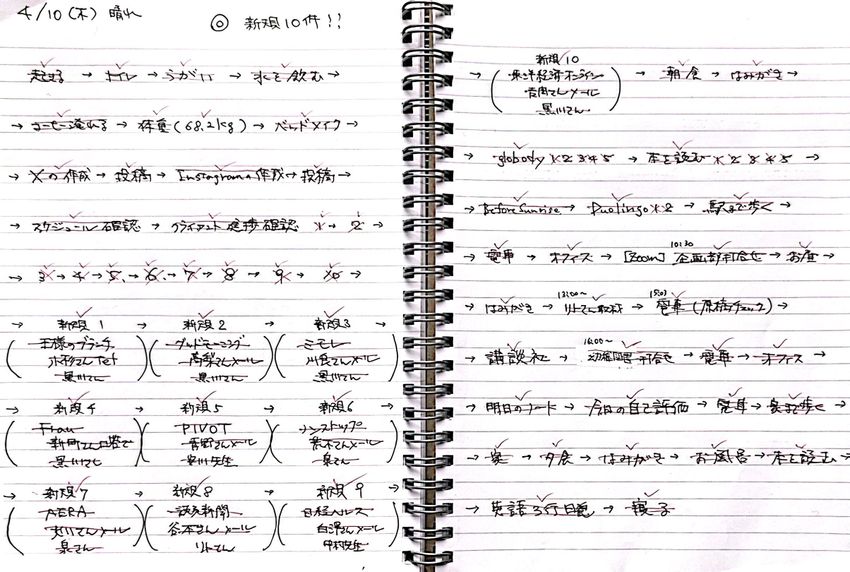 4/10(木) 晴れ
◎ 新規10件!!
起きる → トイレ → うがい → 水を飲む →
→ コーヒー淹れる → 体重(68.2kg) → ベッドメイク →
→ Xの作成 → 投稿 → Instagramの作成 → 投稿 →
→ スケジュール確認 → クライアント進捗確認 1 → 2 →
→ 3 → 4 → 5 → 6 → 7 → 8 → 9 → 10 →
→ 新規1 → 新規2 → 新規3 →
(王様のブランチ (グッドモーニング (ミモレ
さんTel 高梨さんメール 川良さんメール
黒川さん) 黒川さん) 黒川さん)
→ 新規4 → 新規5 → 新規6 →
(Frau (PIVOT (ノンストップ
新町さん 菅野さんメール 荒木さんメール
黒川さん) 安川先生) 泉さん)
→ 新規7 → 新規8 → 新規9 →
(AERA (読売新聞 (日経ヘルス
さんメール 谷本さんメール 白澤さんメール
泉さん) リトさん) 中村先生)
→ 新規10 → 朝食 → はみがき →
(東洋経済オンライン
さんメール
黒川さん)
→ globody × 2 3 4 5 → 本を読む × 2 3 4 5 →
→ Before Sunrise → Duolingo × 2 → 駅まで歩く →
→ 電車 → オフィス → [Zoom] 10:30 企画部打合せ → お昼 →
→ はみがき → 13:00〜 リトさん取材 → 15:03 電車(原稿チェック) →
→ 講談社 → 16:00〜 幻冬舎打合せ → 電車 → オフィス →
→ 明日のノート → 今日の自己評価 → 電車 → 家まで歩く →
→ 家 → 夕食 → はみがき → お風呂 → 本を読む →
→ 英語3行日記 → 寝る